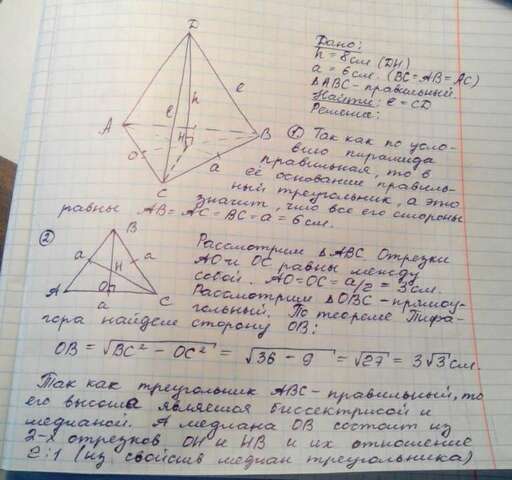 D
Дано:
h = 8 см (DH)
a = 6 см. (BC = AB = AC)
△ABC - правильный.
Найти: e = CD
Решение:
e
h
e
A
H
B
O
a
C
① Так как по усло-
вию пирамида
правильная, то в
её основание правиль-
ный треугольник, а это
значит, что все его стороны
равны AB = AC = BC = a = 6 см.
②
B
a
H
a
A
O
C
a
Рассмотрим △ABC. Отрезки
AO и OC равны между
собой. AO = OC = a/2 = 3 см.
Рассмотрим △OBC - прямоу-
гольный. По теореме Пифа-
гора найдем сторону OB:
OB = √BC² - OC² = √36 - 9 = √27 = 3√3 см.
Так как треугольник ABC - правильный, то
его высота является биссектрисой и
медианой. А медиана OB состоит из
2-х отрезков OH и HB и их отношение
2:1 (из свойств медиан треугольника)